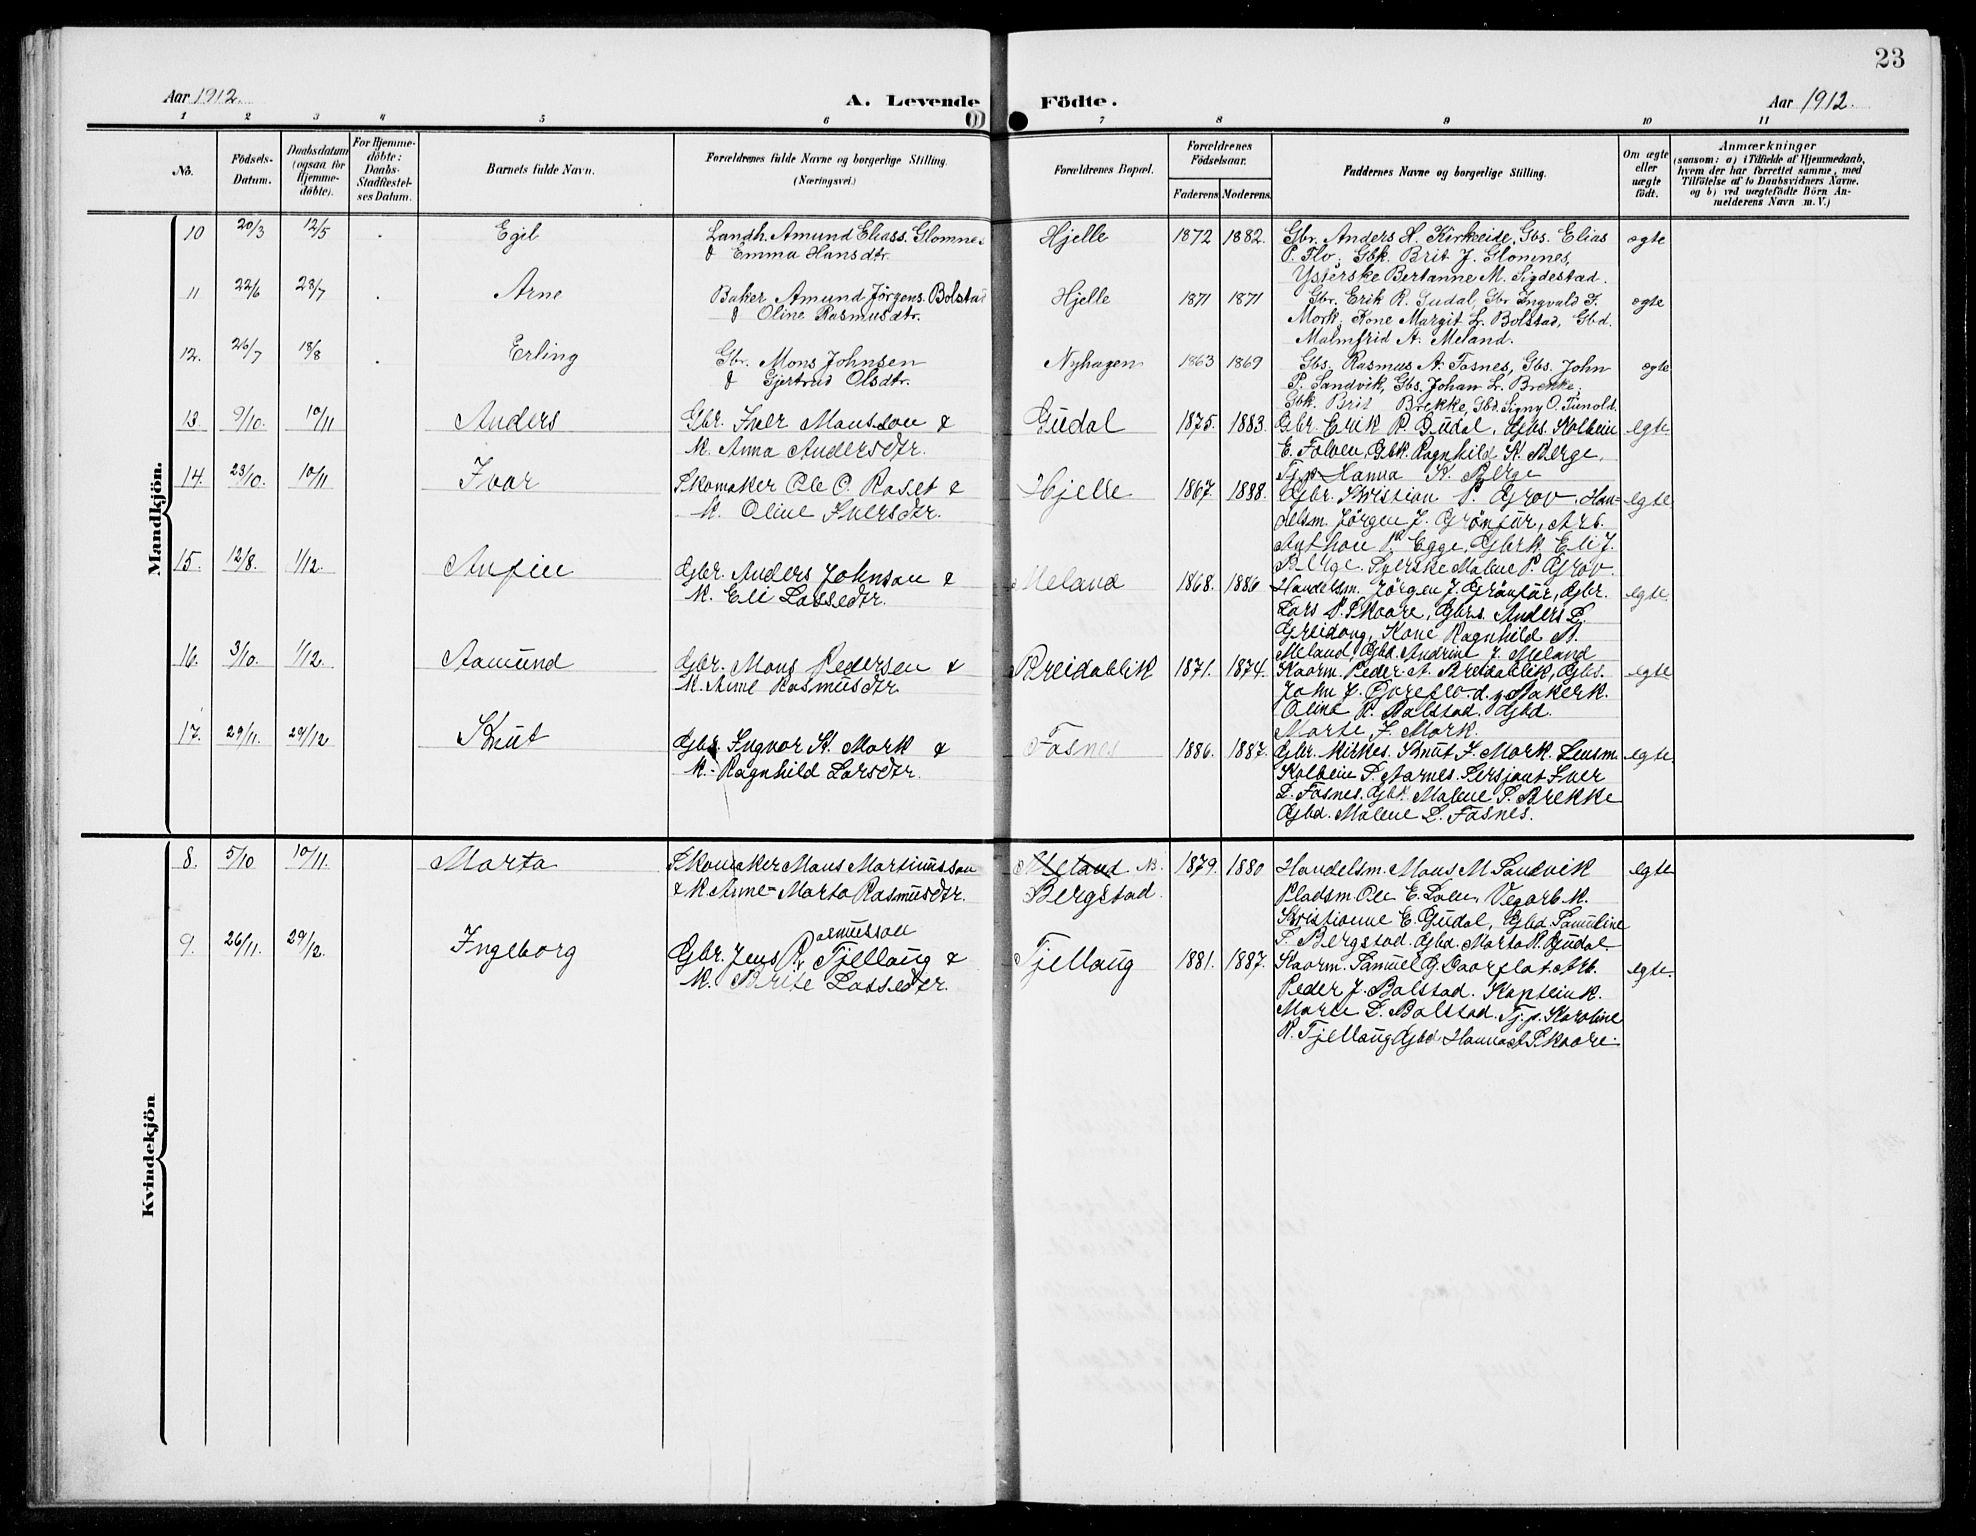 23
Aar 1912. A. Levende Födte. Aar 1912.
1 2 3 4 5 6 7 8 9 10 11
No. Födsels-Datum. Daabsdatum (ogsaa for Hjemme-döbte). For Hjemme-döbte: Daabs-Stadfæstel-ses Datum. Barnets fulde Navn. Forældrenes fulde Navne og borgerlige Stilling. (Næringsvei.) Forældrenes Bopæl. Forældrenes Födselsaar. Faderens. Moderens. Faddernes Navne og borgerlige Stilling. Om ægte eller uægte födt. Anmærkninger (saasom: a) i Tilfælde af Hjemmedaab, hvem der har forrettet samme, med Tilföielse af to Daabsvidners Navne, og b) ved uægtefödte Börn An-melderens Navn m. V.)
Mandkjön.
10 20/3 12/5 Egil Landh. Amund Eliass. Glomnes Hjelle 1872 1882. Gbr. Anders H. Kirkeeide, Gbs. Elias ægte
& Emma Hansdtr. P. Flo, Gbk. Brit J. Glomnes,
Ysterske Bertanne M. Sigdestad.
11 22/6 28/7 Arne Baker Amund Jörgens. Bolstad Hjelle 1871 1871 Gbr. Erik R. Gudal, Gbr Ingvald I. ægte
& Oline Rasmusdtr. Mork, Kone Margit L. Bolstad, Gbd.
Malmfrid A. Meland.
12. 26/7 18/8 Erling Gbr. Mons Johnsen Nyhagen 1863 1869 Gbs. Rasmus A. Fosnes, Gbs. John ægte
& Gjertrud Olsdtr. P. Sandvik, Gbs. Johan L. Brekke,
Gbk. Brit Brekke, Gbd. Signy O. Tunold.
13. 9/10. 10/11 Anders Gbr. Iver Monsson & Gudal 1875. 1883. Gbr. Erik R. Gudal, Gbs. Kolbein egte
K. Anna Andersdtr. E. Folven, Gbk. Ragnhild K. Berge,
Tjp. Hanna K. Berge
14. 23/10. 10/11 Ivar Skomaker Ole O. Roset & Hjelle 1867. 1888. Gbr. Kristian P. Grov, Han- egte
K. Oline Iversdtr. delsm. Jørgen J. Grönfur, Arb.
Anthon P. Egge, Gbrk. Eli J.
Berge. Syerske Malene P. Grov.
15. 12/8. 1/12. Anfin Gbr. Anders Johnson & Meland 1868. 1886 Handelsm. Jørgen J. Grönfur, Gbr. egte.
K. Eli Lassedtr. Lars P. Skaare, Gbrs. Anders L.
Greidung, Kone Ragnhild A.
Meland, Gbd. Andrine J. Meland
16. 3/10. 1/12. Aamund Gbr. Mons Pedersen & Breidablik 1871. 1874. Kaarm. Peder A. Breidablik, Gbs. egte
K. Anne Rasmusdtr. John J. Bakerk.
Oline R. Bolstad. Gbd.
Marte J. Mork.
17. 29/11. 29/12 Knut Gbr. Ingvar K. Mork & Fosnes 1886. 1887. Gbr. Kirkes. Knut J. Mork. Lensm. egte.
K. Ragnhild Larsdtr. Kolbein S. Aarnes. Sersjant Iver
L. Fosnes. Gbk. Malene S. Brekke
Gbd. Malene L. Fosnes.
Kvindekjön
8. 5/10 10/11. Marta Skomaker Mons Martinusson Meland N. 1879. 1880 Handelsm. Mons M. Sandvik egte
& K. Anne-Marta Rasmusdtr. Bergstad. Pladsm. Ole E. Vegarb.k.
Kristianne E. Gudal, Gbd. Samuline
S. Bergstad. Gbd. Marta R. Gudal.
9. 26/11. 29/12. Ingeborg Gbr. Jens Rasmusson Tjellaug & Tjellaug 1881. 1887. Kaarm. Samuel G. Arb. egte.
K. Brite Lassedtr. Peder J. Bolstad. Kapteink.
Marie L. Bolstad. Tj.p. Karoline
R. Tjellaug Gbd Hanna Skaare.